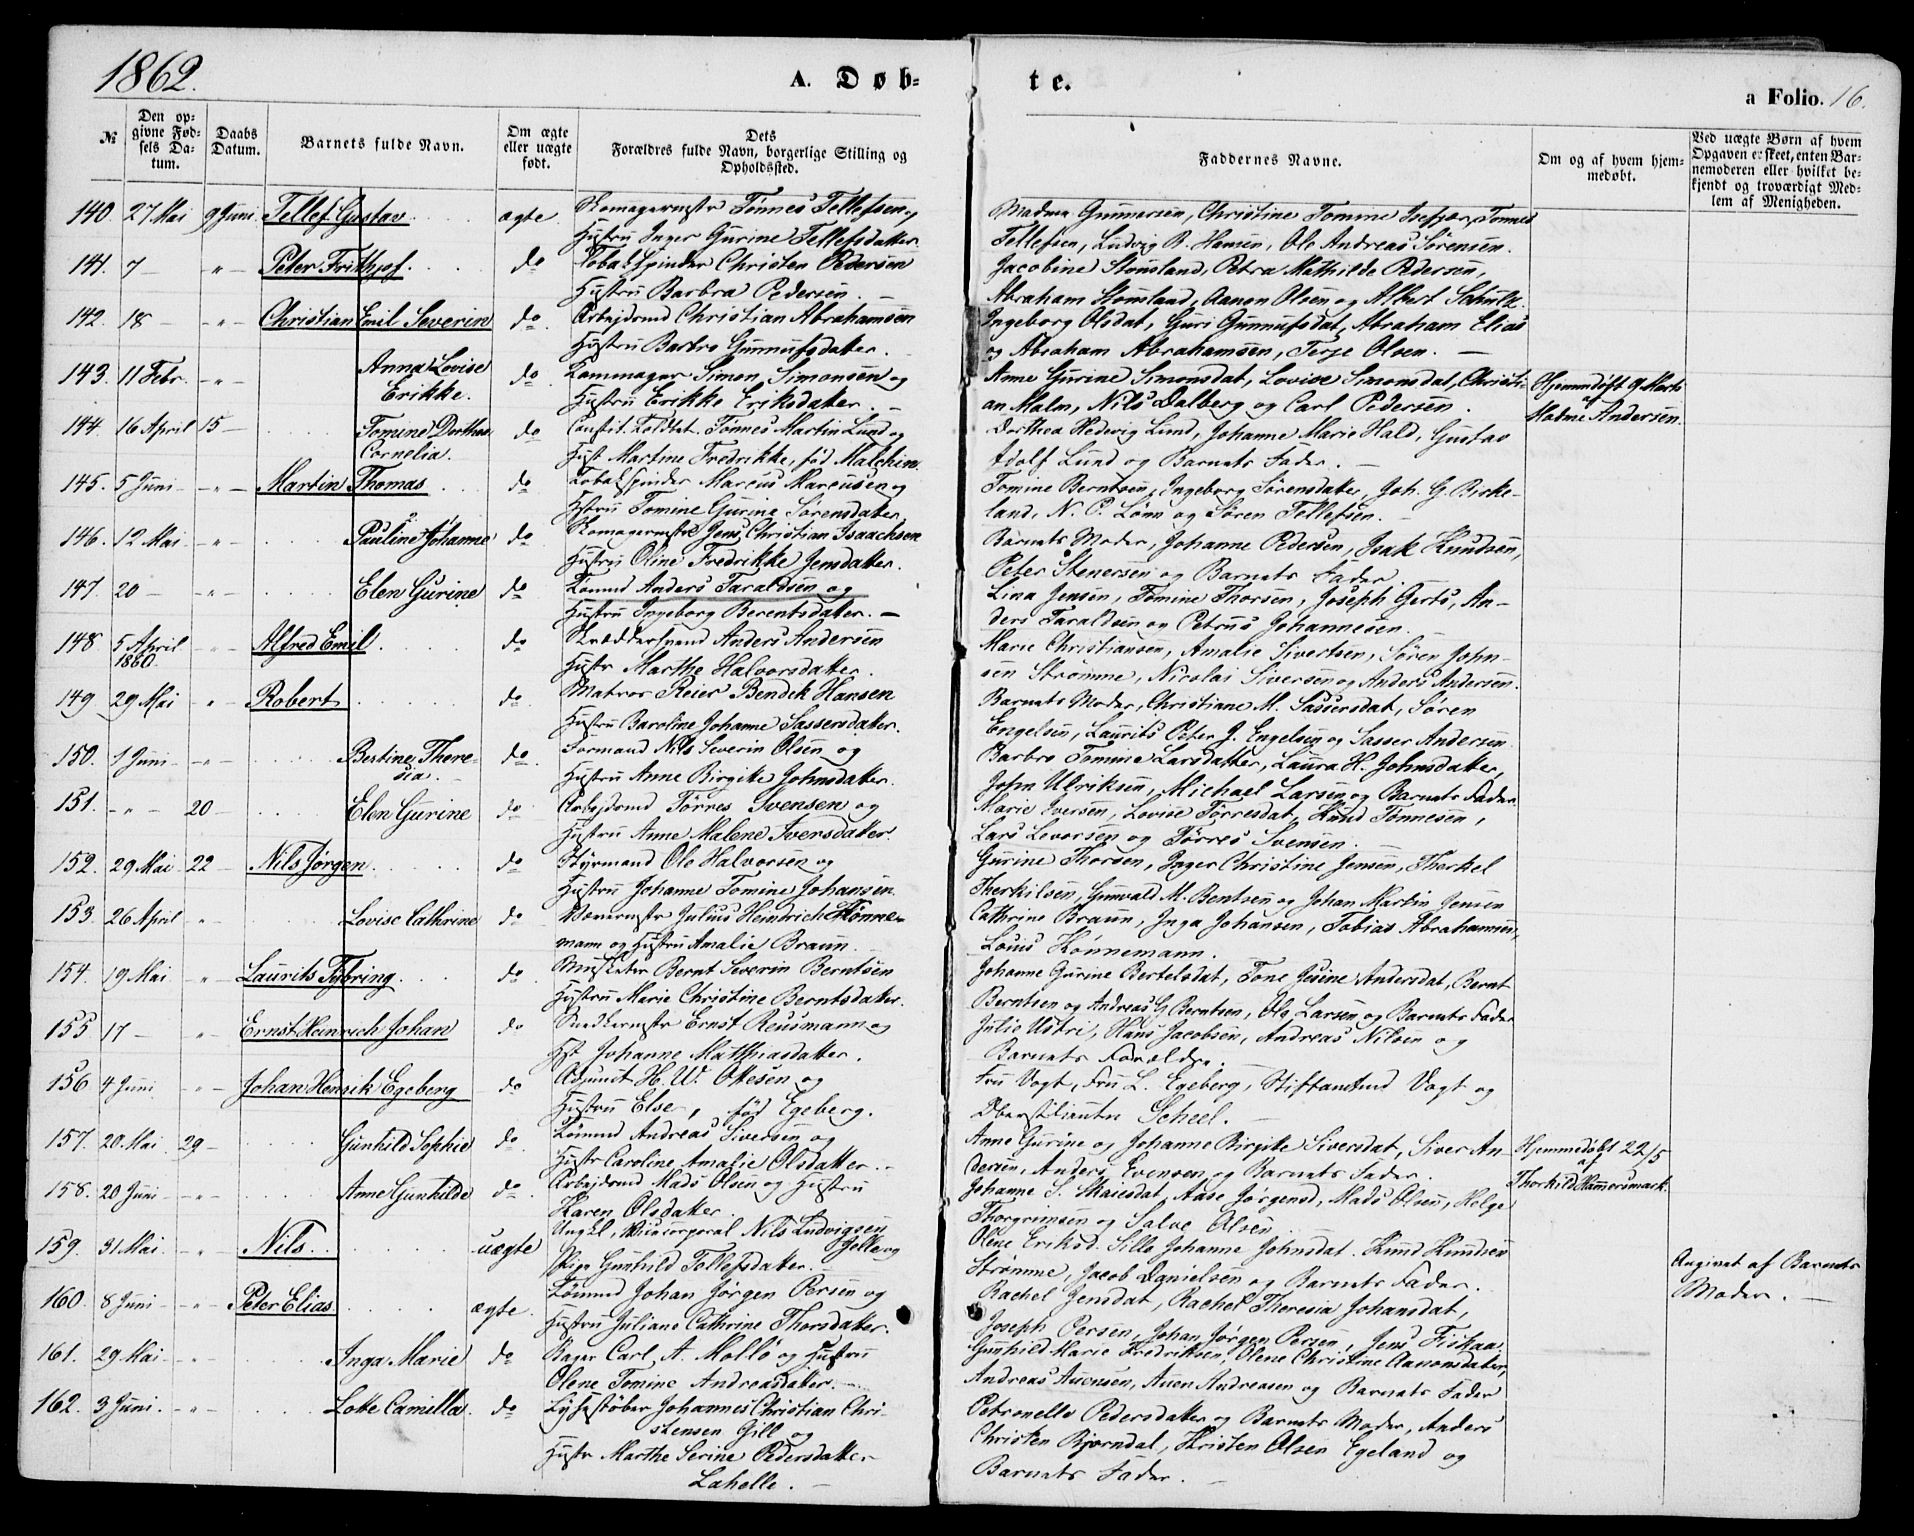 1862.
A. Døb-
te.
a Folio. 16.
№
Den op-
givne Fød-
sels Da-
tum.
Daabs
Datum.
Barnets fulde Navn.
Om ægte
eller uægte
født.
Dets
Forældres fulde Navn, borgerlige Stilling og
Opholdssted.
Faddernes Navne.
Om og af hvem hjem-
medøbt.
Ved uægte Børn af hvem
Opgaven er skeet, enten Bar-
nemoderen eller hvilket be-
kjendt og troværdigt Med-
lem af Menigheden.
140. 27 Mai 9 Juni Tellef Gustav ægte Skomagermstr Tønnes Tellefsen og
Hustru Inger Gurine Tellefsdatter.
Madme Gunnersen, Christine Tomine Tønnes
Tellefsen, Ludvig B. Hansen, Ole Andreas Sørensen.
141. 7 – „ – Peter Frithjof. do Tobakspinder Christen Pedersen
Hustru Barbra Pedersen. –
Jacobine Stousland, Petra Mathilde Pedersen,
Abraham Stousland, Aanon Olsen og Albert Schulz.
142. 18 – – „ – Christian Emil Severin do Arbejdsmd Christian Abrahamsen
Hustru Barbro Gunnufsdatter.
Ingeborg Olsdat, Guri Gunnufsdat, Abraham Elias
og Abraham Abrahamsen, Terje Olsen. –
143. 11 Febr. – „ – Anna Lovise
Erikke. do Simon Simonsen og
Hustru Erikke Eriksdatter. –
Anne Gurine Simonsdat, Lovise Simonsdat, Christi-
an Malm, Nils Dalberg og Carl Pedersen.
Hjemmedøbt 9 Marts
af
Madme Andersen.
144. 16 April 15 – Tomine Dorthea
Cornelia. do Constit. Toldbet. Tønnes Martin Lund og
Hust Martine Fredrikke, fød Malchin.
Dorthea Hedevig Lund, Johanne Marie Hald, Gustav
Adolf Lund og Barnets Fader. –
145. 5 Juni – „ – Martin Thomas do Tobakspinder Marcus Marcusen og
Hustru Tomine Gurine Sørensdatter.
Tomine Berntsen, Ingeborg Sørensdatter, Joh. G. Birke-
land, N. P. Lønn og Søren Tellefsen. –
146. 12 Mai – „ – Pauline Johanne do Skomagermstr Jens Christian Isaachsen
Hustru Oline Fredrikke Jensdatter.
Barnets Moder, Johanne Pedersen, Isak Knudsen,
Peter Stenersen og Barnets Fader.
147. 20 – – „ – Elen Gurine do Sømnd Anders Taraldsen og
Hustru Ingeborg Berentsdatter. –
Lina Jensen, Tomine Thorsen, Joseph Gerts, An-
ders Taraldsen og Petrus Johannesen.
148. 5 April
1860. – „ – Alfred Emil. do Skræddersvend Anders Andersen
Hustr Marthe Halvorsdatter.
Marie Christiansen, Amalie Sivertsen, Søren John-
sen Strømme, Nicolai Siversen og Anders Andersen.
149. 29 Mai – „ – Robert do Matros Reier Bendik Hansen
Hustru Baroline Johanne Sassersdatter.
Barnets Moder, Christiane M. Sassersdat, Søren
Engelsen, Laurits Peter J. Engelsen og Sasser Andersen
150. 1 Juni – „ – Bertine There-
sia. – do Tormand Nils Severin Olsen og
Hustru Anne Birgitte Johnsdatter.
Barbro Tomine Larsdatter, Laura H. Johnsdatter,
John Ulriksen, Michael Larsen og Barnets Fader
151. – „ – 20 – Elen Gurine do Arbejdsmd Tørres Svensen og
Hustru Anne Malene Iversdatter.
Marie Iversen, Lovise Tørresdat, Knud Tønnesen,
Lars Levorsen og Tørres Svensen. –
152. 29 Mai 22 – Nils Jørgen. do Styrmand Ole Halvorsen og
Hustru Johanne Tomine Johansen.
Gurine Thorsen, Inger Christine Jensen, Therkel
Therkilsen, Gunvald M. Bentsen og Johan Martin Jensen
153. 26 April „ – Lovise Cathrine do Vævermstr Julius Heinrich Könne-
mann og Hustru Amalie Braun.
Cathrine Braun, Inga Johansen, Tobias Abrahamsen,
Louis Könnemann.
154. 19 Mai „ – Laurits Tybring. do Musketer Bernt Severin Berntsen
Hustru Marie Christine Berntsdatter.
Johanne Gurine Bertelsdat, Tone Jesine Andersdat, Bernt
Berntsen og Andreas G. Berntsen, Ole Larsen og Barnets Fader
155 17 – „ – Ernst Heinrich Johan do Snedkermstr Ernst Reusmann og
Hst Johanne Matthiasdatter.
Julie Ustri, Hans Jacobsen, Andreas Nilsen og
Barnets Forældre.
156 4 Juni „ – Johan Henrik Egeberg do Adjunct H. W. Ottesen og
Hustru Else, fød Egeberg.
Fru Vogt, Fru L. Egeberg, Stiftamtmd Vogt og
Oberstlieutn Scheel. –
157. 20. Mai 29 – Gunhild Sophie do Sømnd Andreas Siversen og
Hustr Caroline Amalie Olsdatter. –
Anne Gurine og Johanne Birgitte Siversdat, Siver An-
dersen, Anders Evensen og Barnets Fader.
Hjemmedøbt 22/5
af
Thorkild Hammersmark.
158. 20 Juni – „ – Anne Gunhilde do Arbejdsmd Mads Olsen og Hustru
Karen Olsdatter.
Johanne S. Aase Jørgensd, Mads Olsen, Helge
Thorgrimsen og Salve Olsen
159. 31 Mai – „ – Nils. uægte Ungkl, Vicecorporal Nils Ludvigsen
Jelle og
Pige Gunhild Tellefsdatter. –
Olene Eriksd. Sille Johanne Johnsdat. Knud Knudsen
Strømme, Jacob Danielsen og Barnets Fader.
Angivet af Barnets
Moder. –
160. 8 Juni – „ – Peter Elias. ægte. Sømnd Johan Jørgen Persen og
Hustru Juliane Cathrine Thorsdatter.
Rachel Jensdat, Rachel Theresia Johansdat,
Joseph Persen, Johan Jørgen Persen, Jens Fiskaa.
161. 29 Mai – „ – Inga Marie do Bager Carl A. Mollö og Hustru
Olene Tomine Andreasdatter. –
Gunhild Marie Fredriksen, Olene Christine Aanonsdatter,
Andreas Auensen, Auen Andreasen og Barnets Fader
162. 3 Juni. – „ – Lotte Camilla. do Lysestøber Johannes Christian Chri-
stensen Gill og
Hustr Marthe Serine Pedersdatter
Lahelle. –
Petronelle Pedersdatter og Barnets Moder, Anders
Christen Bjørndal, Kristen Olsen Egeland og
Barnets Fader. –